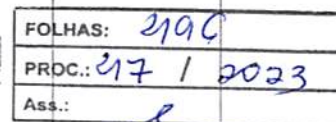 FOLHAS: 219C
PROC.: 217 / 2023
Ass.: